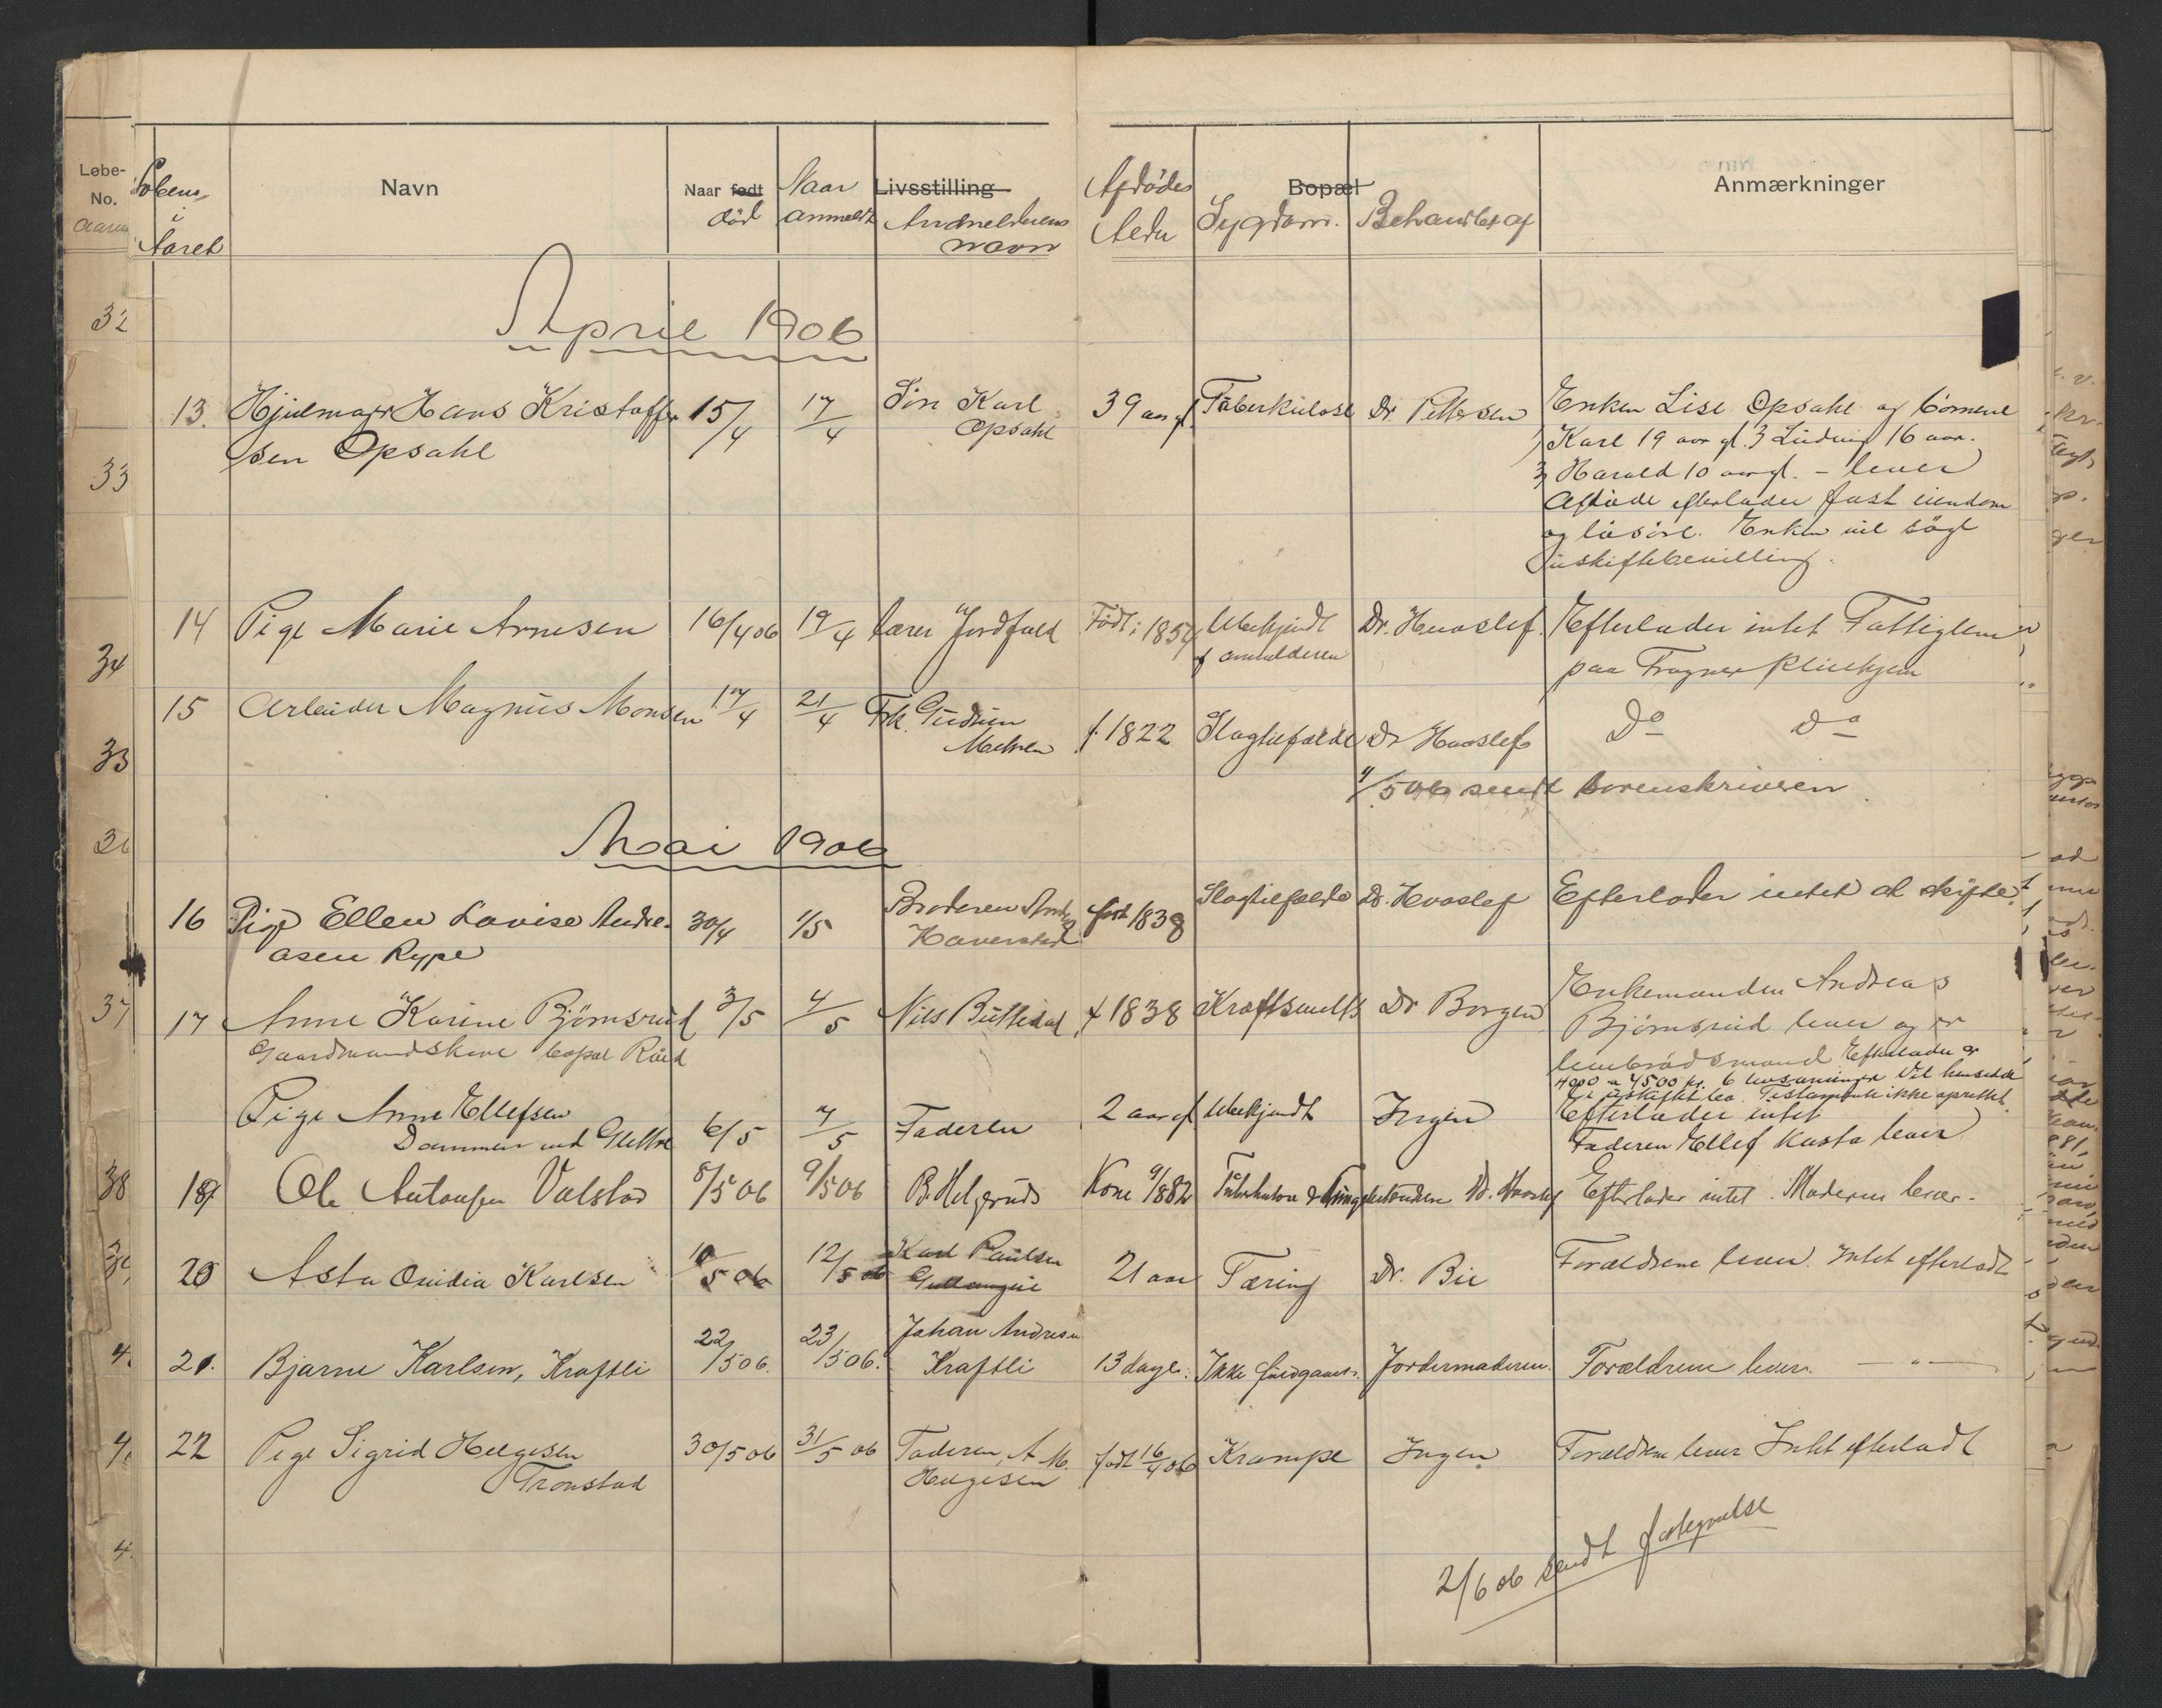 Løbe-
No.
Løbenr
i
Aaret
Navn
Naar født
død
Naar
anmeldt
Livsstilling
Anmelderens
navn
Afdødes
Alder
Bopæl
Sygdom.
Behandlet af
Anmærkninger
April 1906
13. Hjulmager Hans Kristoffer 15/4 17/4 Søn Karl 39 aar gl. Tuberkulose Dr. Pettersen Enken Lise Opsahl og börnene
sen Opsahl Opsahl Karl 19 aar gl. Ludvig 16 aar.
3, Harald 10 aar gl. - lever
Afdøde efterlader fast eiendom
og løsöre. Enken vil søge
uskiftebevilling.
14 Pige Marie Arnesen 16/4 06 19/4 Lærer Jordfald Født i 185 Ubekjendt Dr. Hvoslef. Efterlader intet Fattiglem
af anmelderen paa Frogner Pleiehjem
15 Arbeider Magnus Monsen 17/4 21/4 Frk. Gudrun f. 1822 Slagtilfælde Dr Hvoslef Do Do
/5 06 sendt Sorenskriveren
Mai 1906
16 Pige Ellen Lovise Andre- 30/4 1/5 Broderen født 1838 Slagtilfælde Dr. Hvoslef Efterlader intet at skifte.
asen Rype Haverstad
17 Anne Karine Björnsrud 3/5 4/5 Nils f 1838 Kræft Dr Borgen Enkemanden Andreas
Gaardmandskone bopæl Björnsrud lever og er
lembrödsmand Efterlader
4000 a 4500 kr. 6 Vil hensidde
i uskiftet bo. Testamente ikke oprettet.
Pige Anne Ellefsen 6/5 7/5 Faderen 2 aar gl Ubekjendt Ingen Efterlader intet
Dammen ved Faderen Ellef Kasta lever
19 Ole Antonsen Valstad 8/5 06 9/5 06 B. Helgerud Tuberkulose Dr. Hvoslef Efterlader intet. Moderen lever.
20 Asta Ovidia Karlsen 10/5 06 12/5 06 Karl Paulsen 21 aar Tæring Dr. Bie Forældrene lever. Intet efterladt
21. Bjarne Karlsen, Kraftli 22/5 06. 23/5 06. Johan Andresen 13 dage. Ikke fuldgaaet. Jordermoderen. Forældrene lever. — " —
Kraftli
22 Pige Sigrid Helgesen 30/5 06 31/5 06 Faderen, A. M. født 16/4 06 Krampe Ingen Forældrene lever Intet efterladt
Tronstad Helgesen
2/6 06 sendt fortegnelse